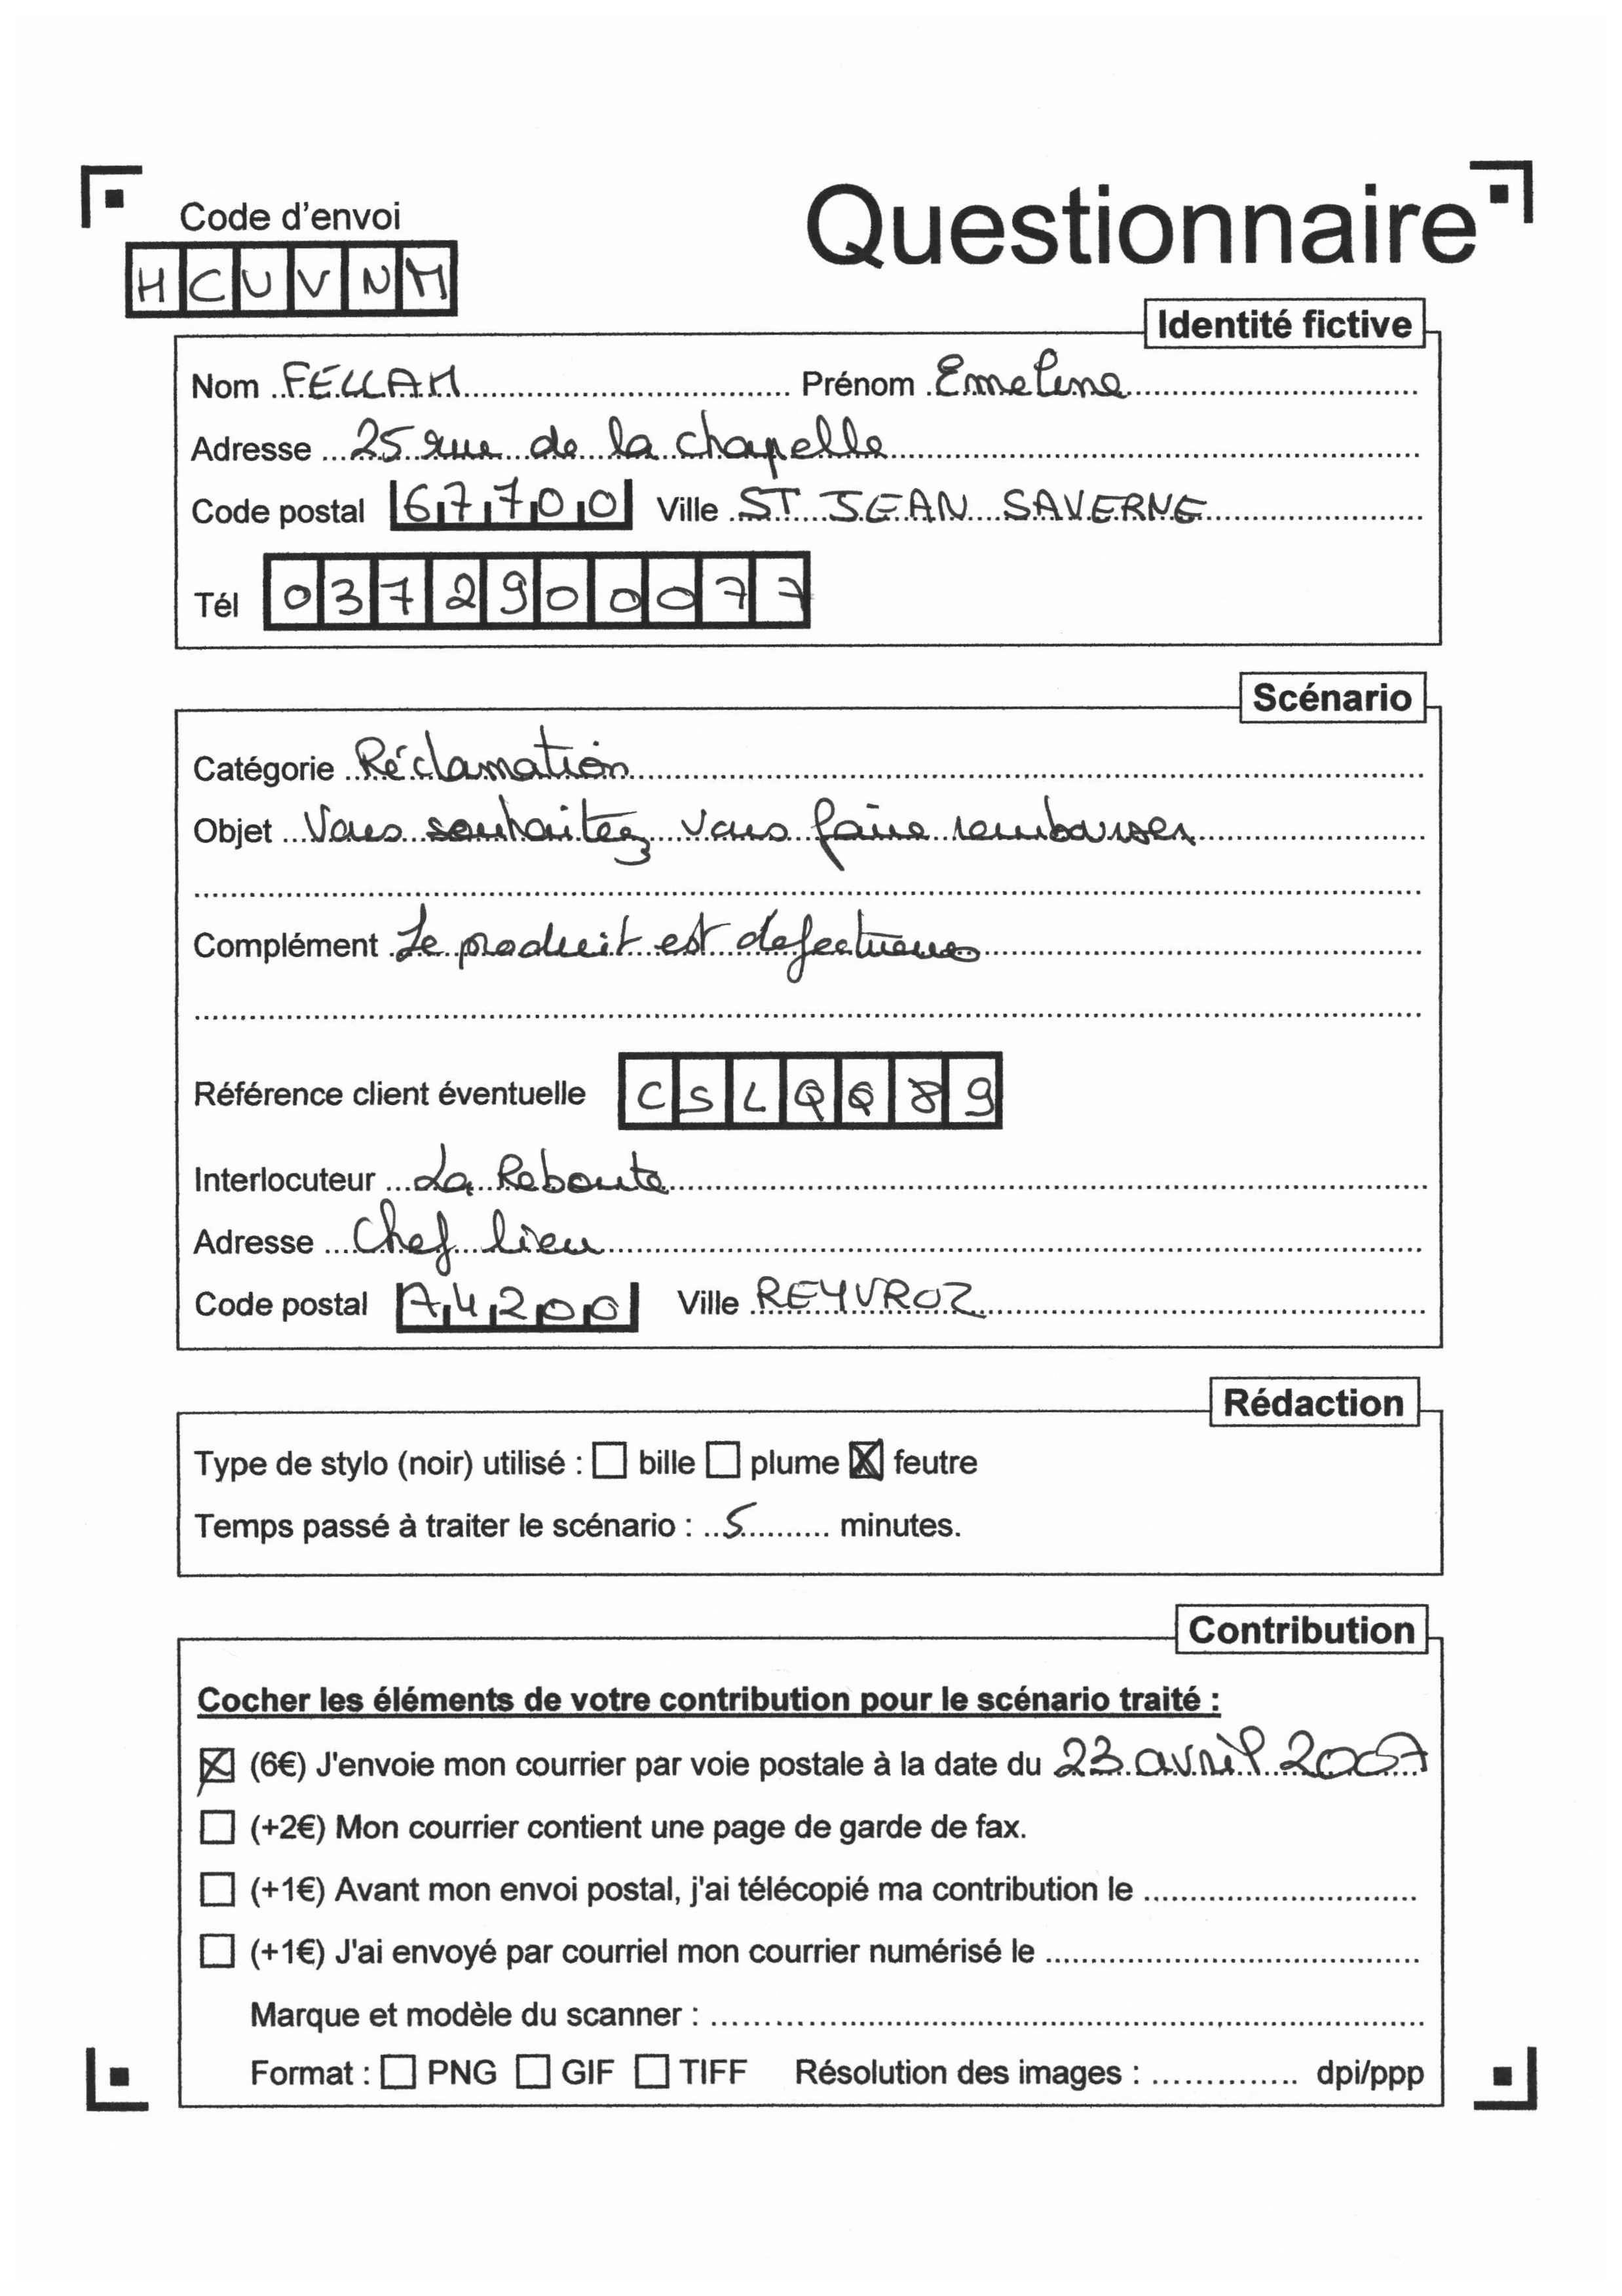 Code d'envoi
Questionnaire
H C U V N M
Identité fictive
Nom FELLAH Prénom Emeline
Adresse 25 rue de la chapelle
Code postal 67700 Ville ST JEAN SAVERNE
Tél 0372900077
Scénario
Catégorie Réclamation
Objet Vous souhaitez vous faire rembourser
Complément Le produit est defectueux
Référence client éventuelle CSLQQ89
Interlocuteur La Reboute
Adresse Chef lieu
Code postal 74200 Ville REYVROZ
Rédaction
Type de stylo (noir) utilisé : ☐ bille ☐ plume ☒ feutre
Temps passé à traiter le scénario : 5 minutes.
Contribution
Cocher les éléments de votre contribution pour le scénario traité :
☒ (6€) J'envoie mon courrier par voie postale à la date du 23 avril 2007
☐ (+2€) Mon courrier contient une page de garde de fax.
☐ (+1€) Avant mon envoi postal, j'ai télécopié ma contribution le
☐ (+1€) J'ai envoyé par courriel mon courrier numérisé le
Marque et modèle du scanner :
Format : ☐ PNG ☐ GIF ☐ TIFF Résolution des images : dpi/ppp